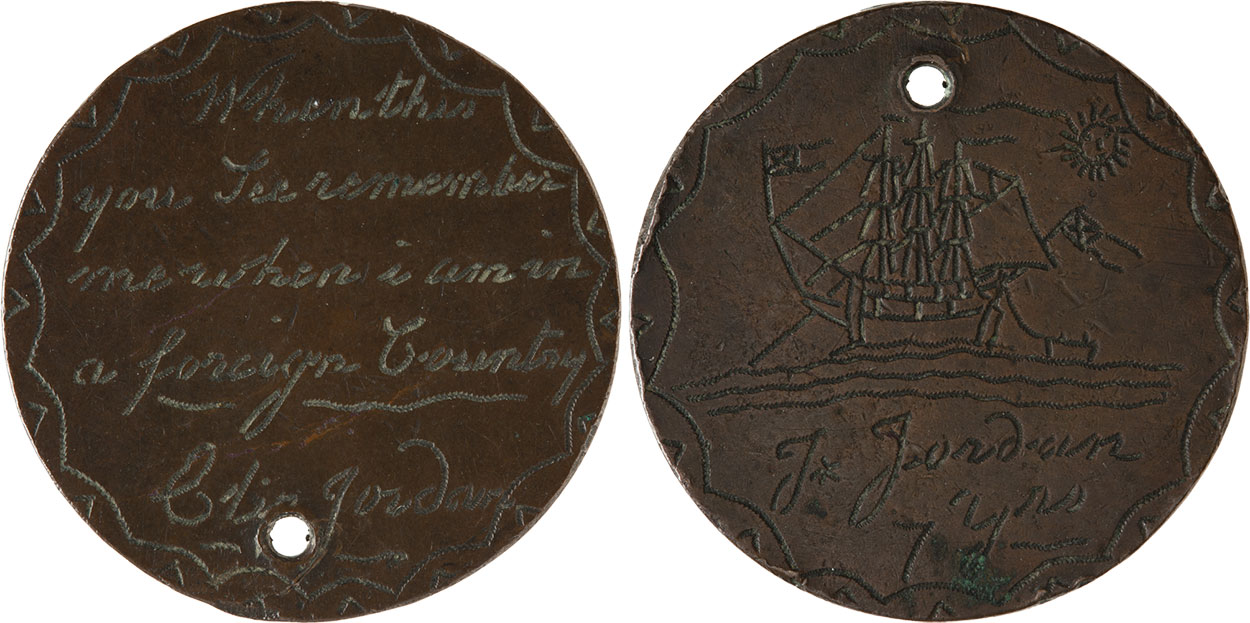 When this
you See remember
me when i am in
a foreign Countrny
Eliz Jordan
J* Jordan
7 yrs